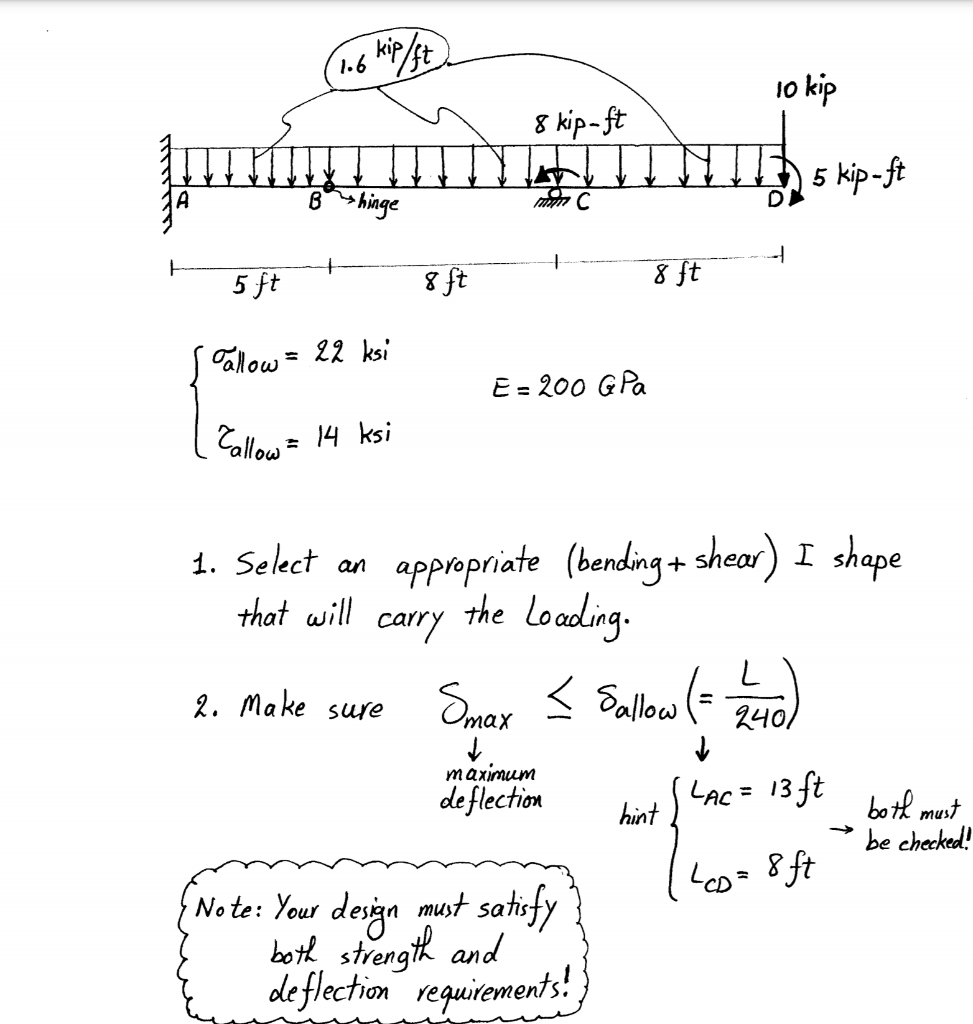 1.6 kip/ft
10 kip
8 kip-ft
5 kip-ft
A
B
hinge
C
D
5 ft
8 ft
8 ft
σallow = 22 ksi
E = 200 GPa
τallow = 14 ksi
1. Select an appropriate (bending + shear) I shape
that will carry the Loading.
2. Make sure δmax ≤ δallow (= L/240)
maximum
deflection
hint
LAC = 13 ft
LCD = 8 ft
→ both must
be checked!
Note: Your design must satisfy
both strength and
deflection requirements!